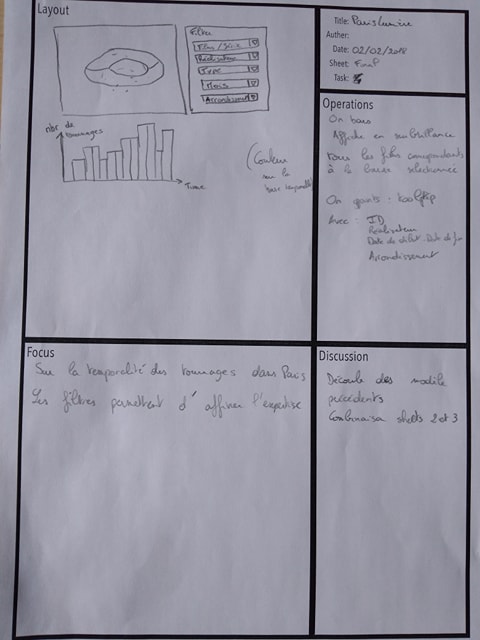 Layout
Filtre
Film / Série
Réalisateur
Type
Mois
Arrondissement
nbr de
tournages
Time
(Couleur
sur la
base temporelle)
Title: Parislumière
Auther:
Date: 02/02/2018
Sheet: Final
Task:
Operations
On bars
Affiche en surbrillance
tous les films correspondants
à la barre sélectionnée
On points : tooltip
Avec : ID
Réalisateur
Date de début - Date de fin
Arrondissement
Focus
Sur la temporalité des tournages dans Paris
Les filtres permettent d'affiner l'expertise
Discussion
Découle des modèle
précédents
Combinaison sheets 2 et 3